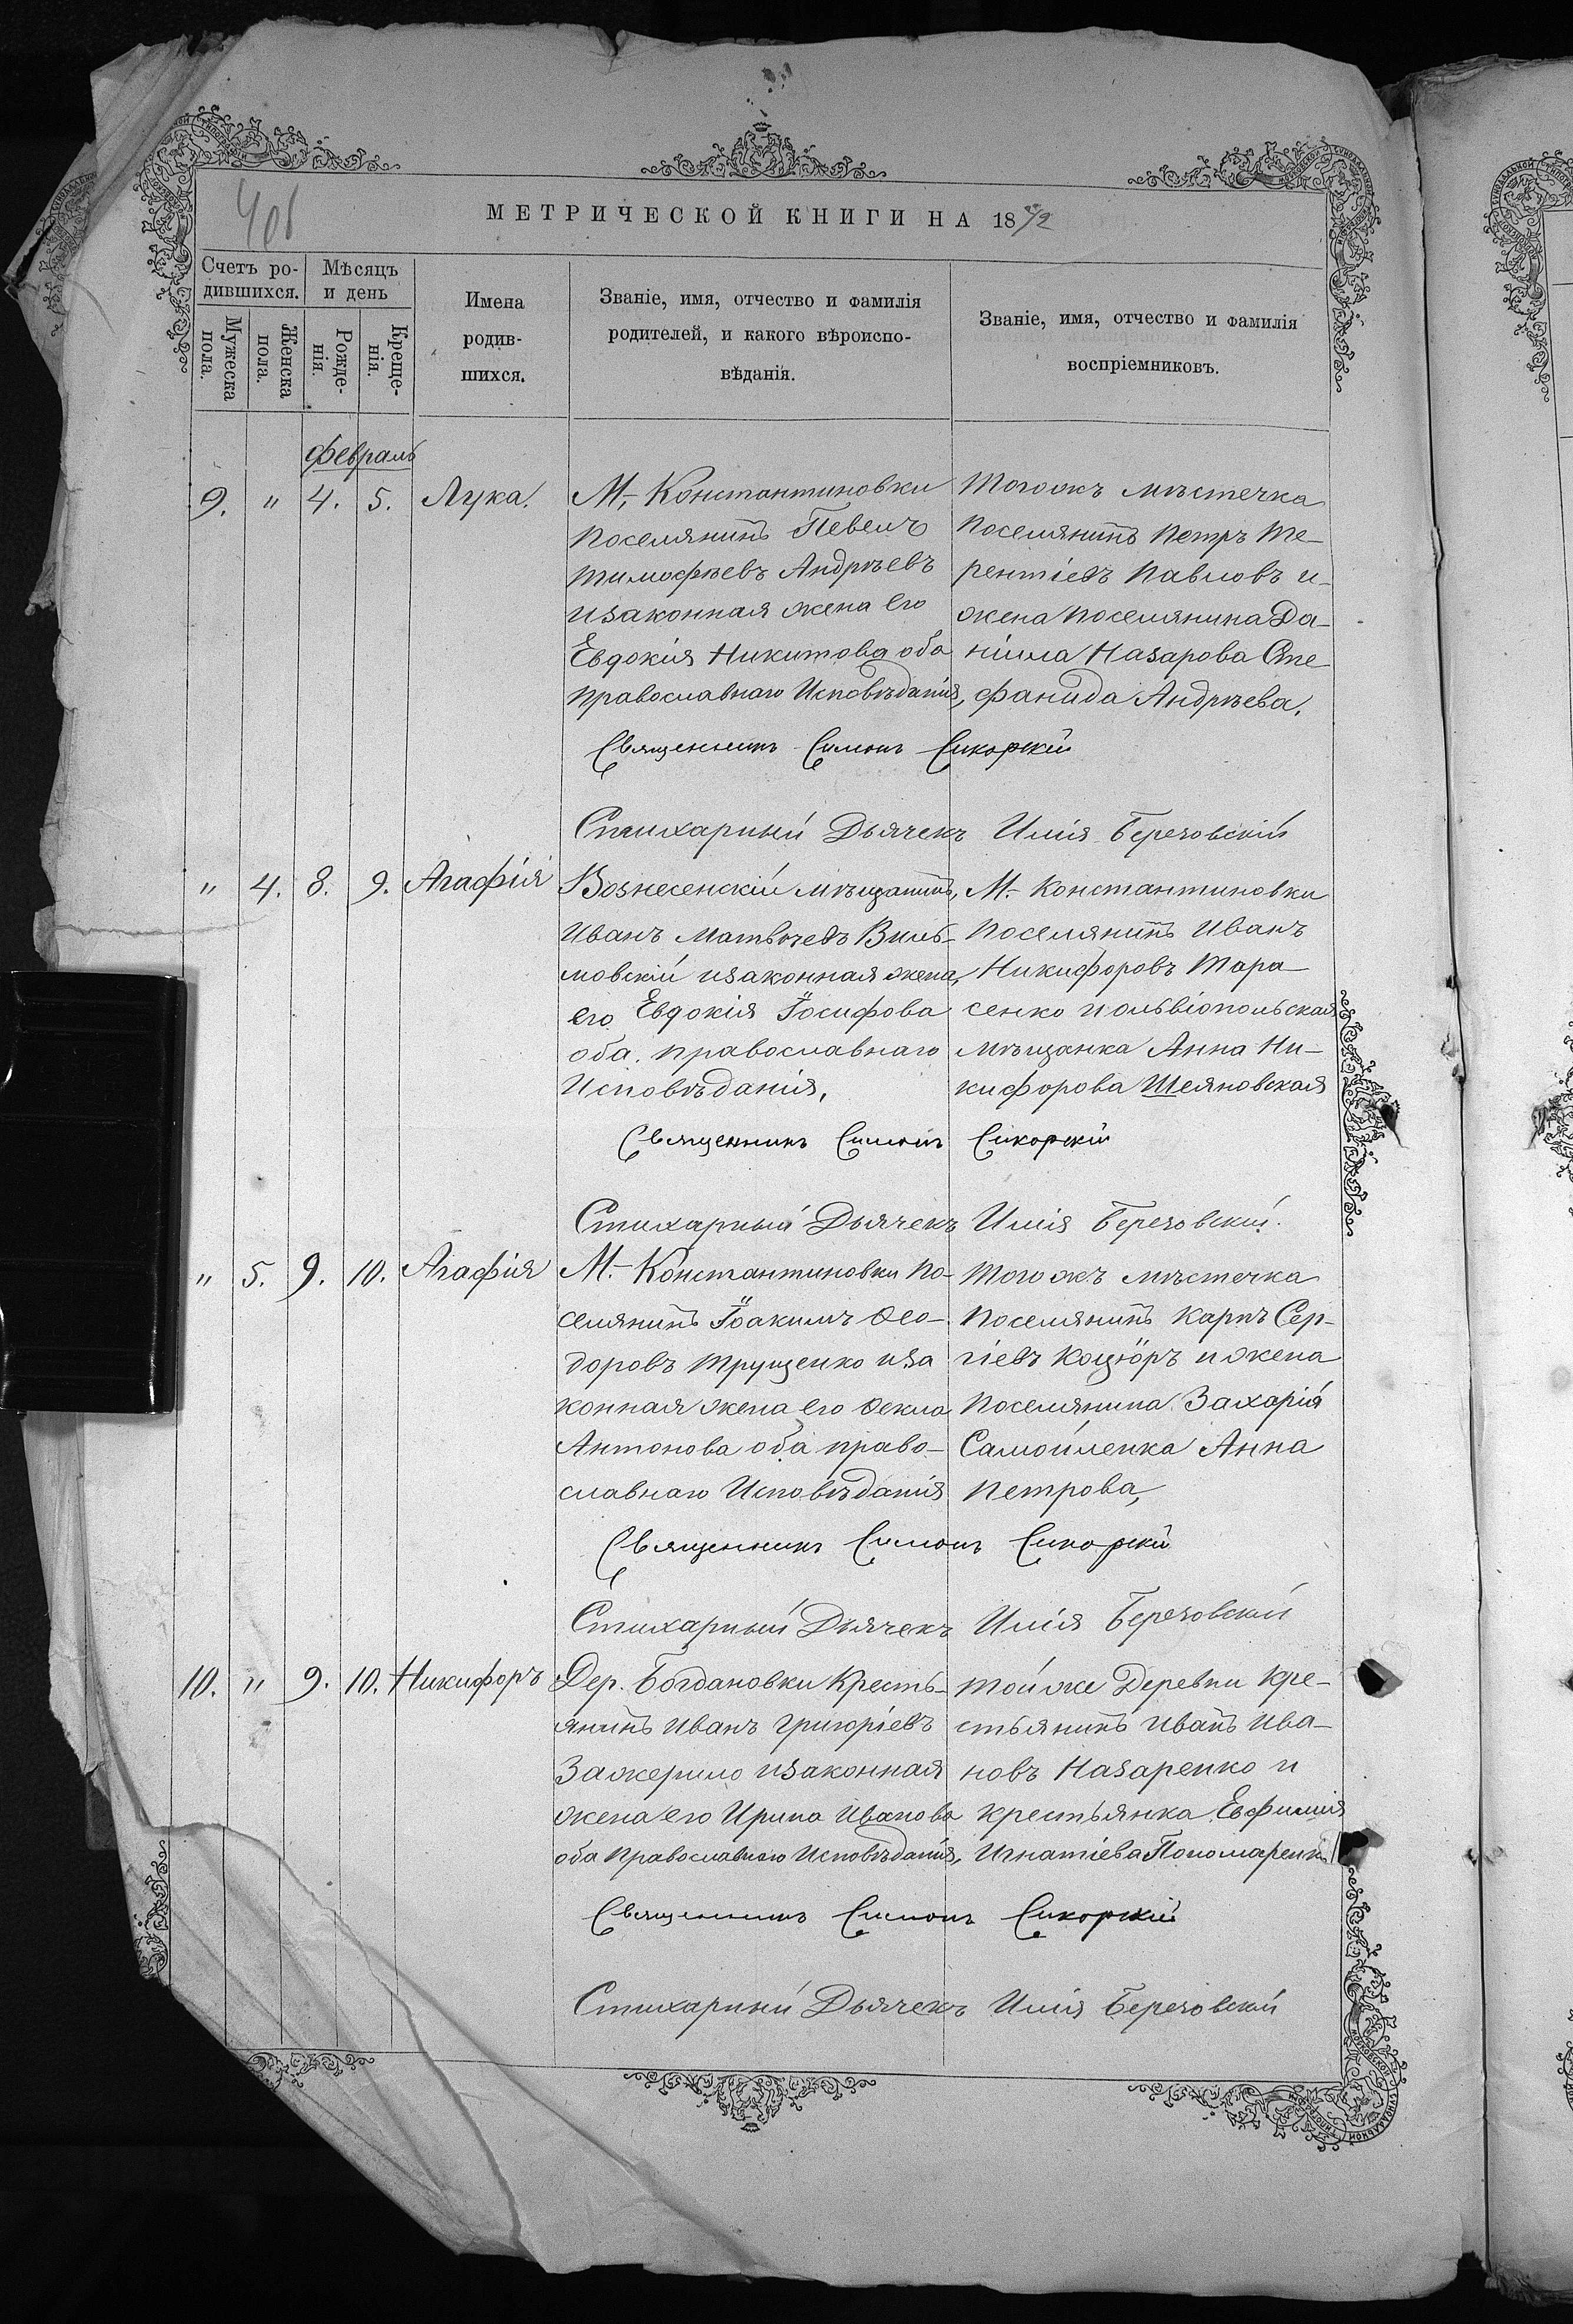 МЕТРИЧЕСКОЙ КНИГИ НА 1872
Счетъ ро-
дившихся.
Мѣсяцъ
и день
Мужеска
пола.
Женска
пола.
Рожде-
нія.
Креще-
нія.
Имена
родив-
шихся.
Званіе, имя, отчество и фамилія
родителей, и какого вѣроиспо-
вѣданія.
Званіе, имя, отчество и фамилія
воспріемниковъ.
Февраль
9. " 4. 5. Лука.
М. Константиновки
поселянинъ Павелъ
Тимофѣевъ Андрѣевъ
изаконная жена его
Евдокія Никитова оба
православнаго Исповѣданія,
Тогожъ мѣстечка
поселянинъ Петръ Те-
рентіевъ Павловъ и
жена поселянина Да-
ніила Назарова Сте-
фанида Андрѣева.
Священникъ Симонъ Сикорскій
Стихарный Дьячекъ Илія Березовскій
" 4. 8. 9. Агафія
Вознесенскій мѣщанинъ,
Иванъ Матвѣевъ Виль-
мовскій изаконная жена,
его Евдокія Іосифова
оба православнаго
Исповѣданія,
М. Константиновки
поселянинъ Иванъ
Никифоровъ Тара-
сенко и ольвіопольская
мѣщанка Анна Ни-
кифорова Шеляновская
Священникъ Симонъ Сикорскій
Стихарный Дьячекъ Илія Березовскій.
" 5. 9. 10. Агафія
М. Константиновки по-
селянинъ Іоакимъ Ѳео-
доровъ Трущенко иза
конная жена его Ѳекла
Антонова оба право-
славнаго Исповѣданія
Тогожъ мѣстечка
поселянинъ Карпъ Сер-
гіевъ Коцюръ и жена
поселянина Захарія
Самойленка Анна
Петрова,
Священникъ Симонъ Сикорскій
Стихарный Дьячекъ Илія Березовскій
10. " 9. 10. Никифоръ
Дер. Богдановки Кресть-
янинъ Иванъ Григоріевъ
Зажерило изаконная
жена его Ирина Иванова
оба православнаго Исповѣданія,
Той же Деревни Кре-
стьянинъ Иванъ Ива-
новъ Назаренко и
крестьянка Евфимія
Игнатіева Пономаренк
Священникъ Симонъ Сикорскій
Стихарный Дьячекъ Илія Березовскій